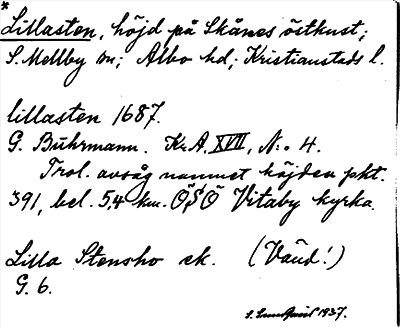 *
Lillasten, höjd på Skånes östkust;
S. Mellby sn; Albo hd; Kristianstads l.
lillasten 1687.
G. Buhrmann. Kr.A. XVII, N:o 4.
Trol. avsåg namnet höjden pkt.
391, bel. 5,4 km. ÖSÖ Vitaby kyrka.
Lilla Stensho ek. (Vänd!)
G. 6.
S. Lundquist 1937.